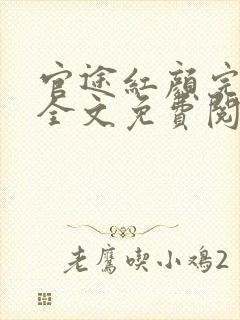 官途紅顏完
全文免費閱
老鷹喫小鸡2